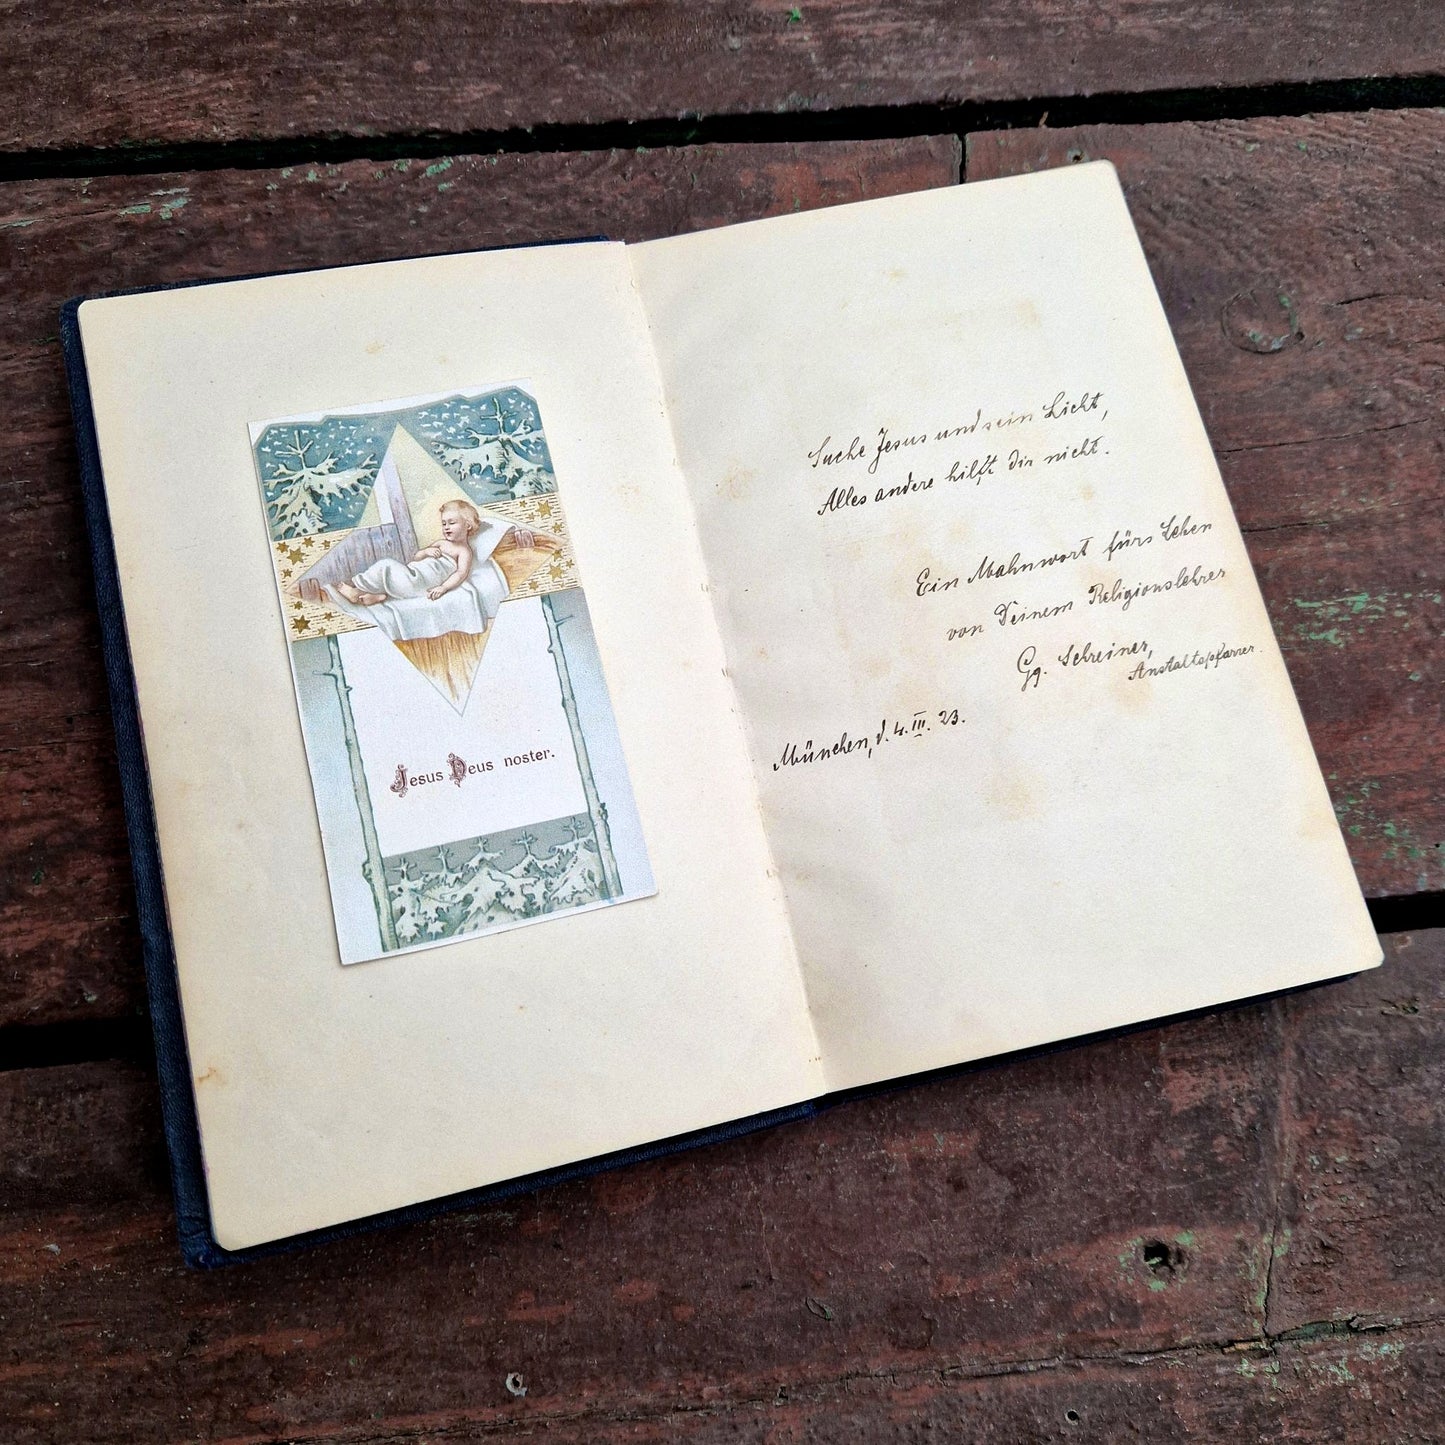 Jesus Deus noster.
Suche Jesus und sein Licht,
Alles andere hilft dir nicht.
Ein Mahnwort fürs Leben
von Deinem Religionslehrer
Gg. Schreiner,
Anstaltspfarrer.
München, d. 4. III. 23.